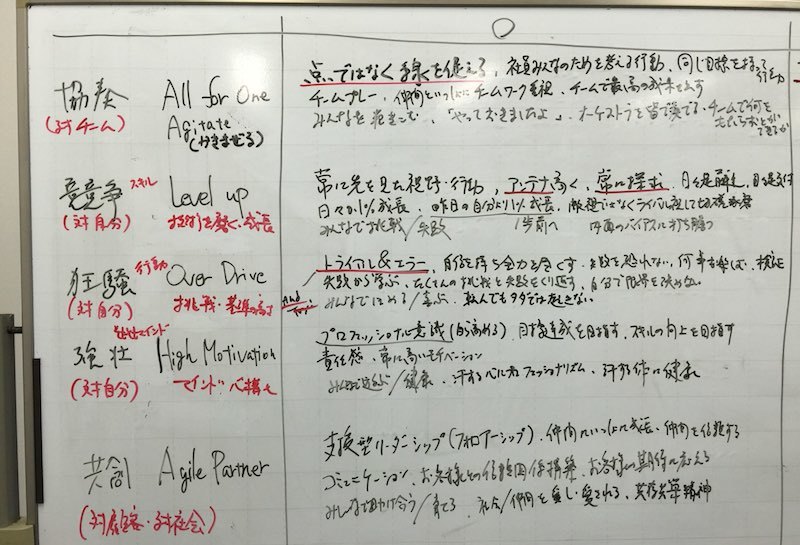 点ではなく線を捉える、社員みんなのためを考える行動、同じ目標を持って行動
協奏 All for One チームプレー、仲間といっしょにチームワーク重視、チームで最高の成果を出す
(対チーム) Agitate みんなを巻きこむ、「やっておきましたよ」、オーケストラを皆で奏でる・チームで何を
(かきまぜる)
競争 スキル Level up 常に先を見た視野・行動、アンテナ高く、常に探求、日々是
(対自分) 技術を磨く・成長 日々が1%成長、昨日の自分より1%成長、敵視ではなくライバル視して
みんなで挑戦/失敗 1歩前へ 内面のバイアスに打ち勝つ
狂騒 行動 Over Drive トライアル&エラー、自信を持ち全力を尽くす、失敗を恐れない、何事も楽しむ、検証
(対自分) 挑戦・基準の高さ 失敗から学ぶ、たくさんの挑戦と失敗をくり返す、自分で限界を決めない
みんなでほめる/喜ぶ、転んでもタダでは起きない
強壮 マインド High Motivation プロフェッショナル意識(自ら高める)、目標達成を目指す、スキルの向上を目指す
(対自分) マインド・心構え 責任感、常に高いモチベーション
みんなで/健康、汗する心にプロフェッショナリズム、汗する体に健康
共創 Agile Partner 支援型リーダーシップ(フォロアーシップ)、仲間といっしょに成長・仲間を信頼する
(対顧客・対社会) コミュニケーション、お客様との信頼関係構築、お客様の期待に応える
みんなで助け合う/育てる、社会/仲間を愛し・愛される、共存共栄精神